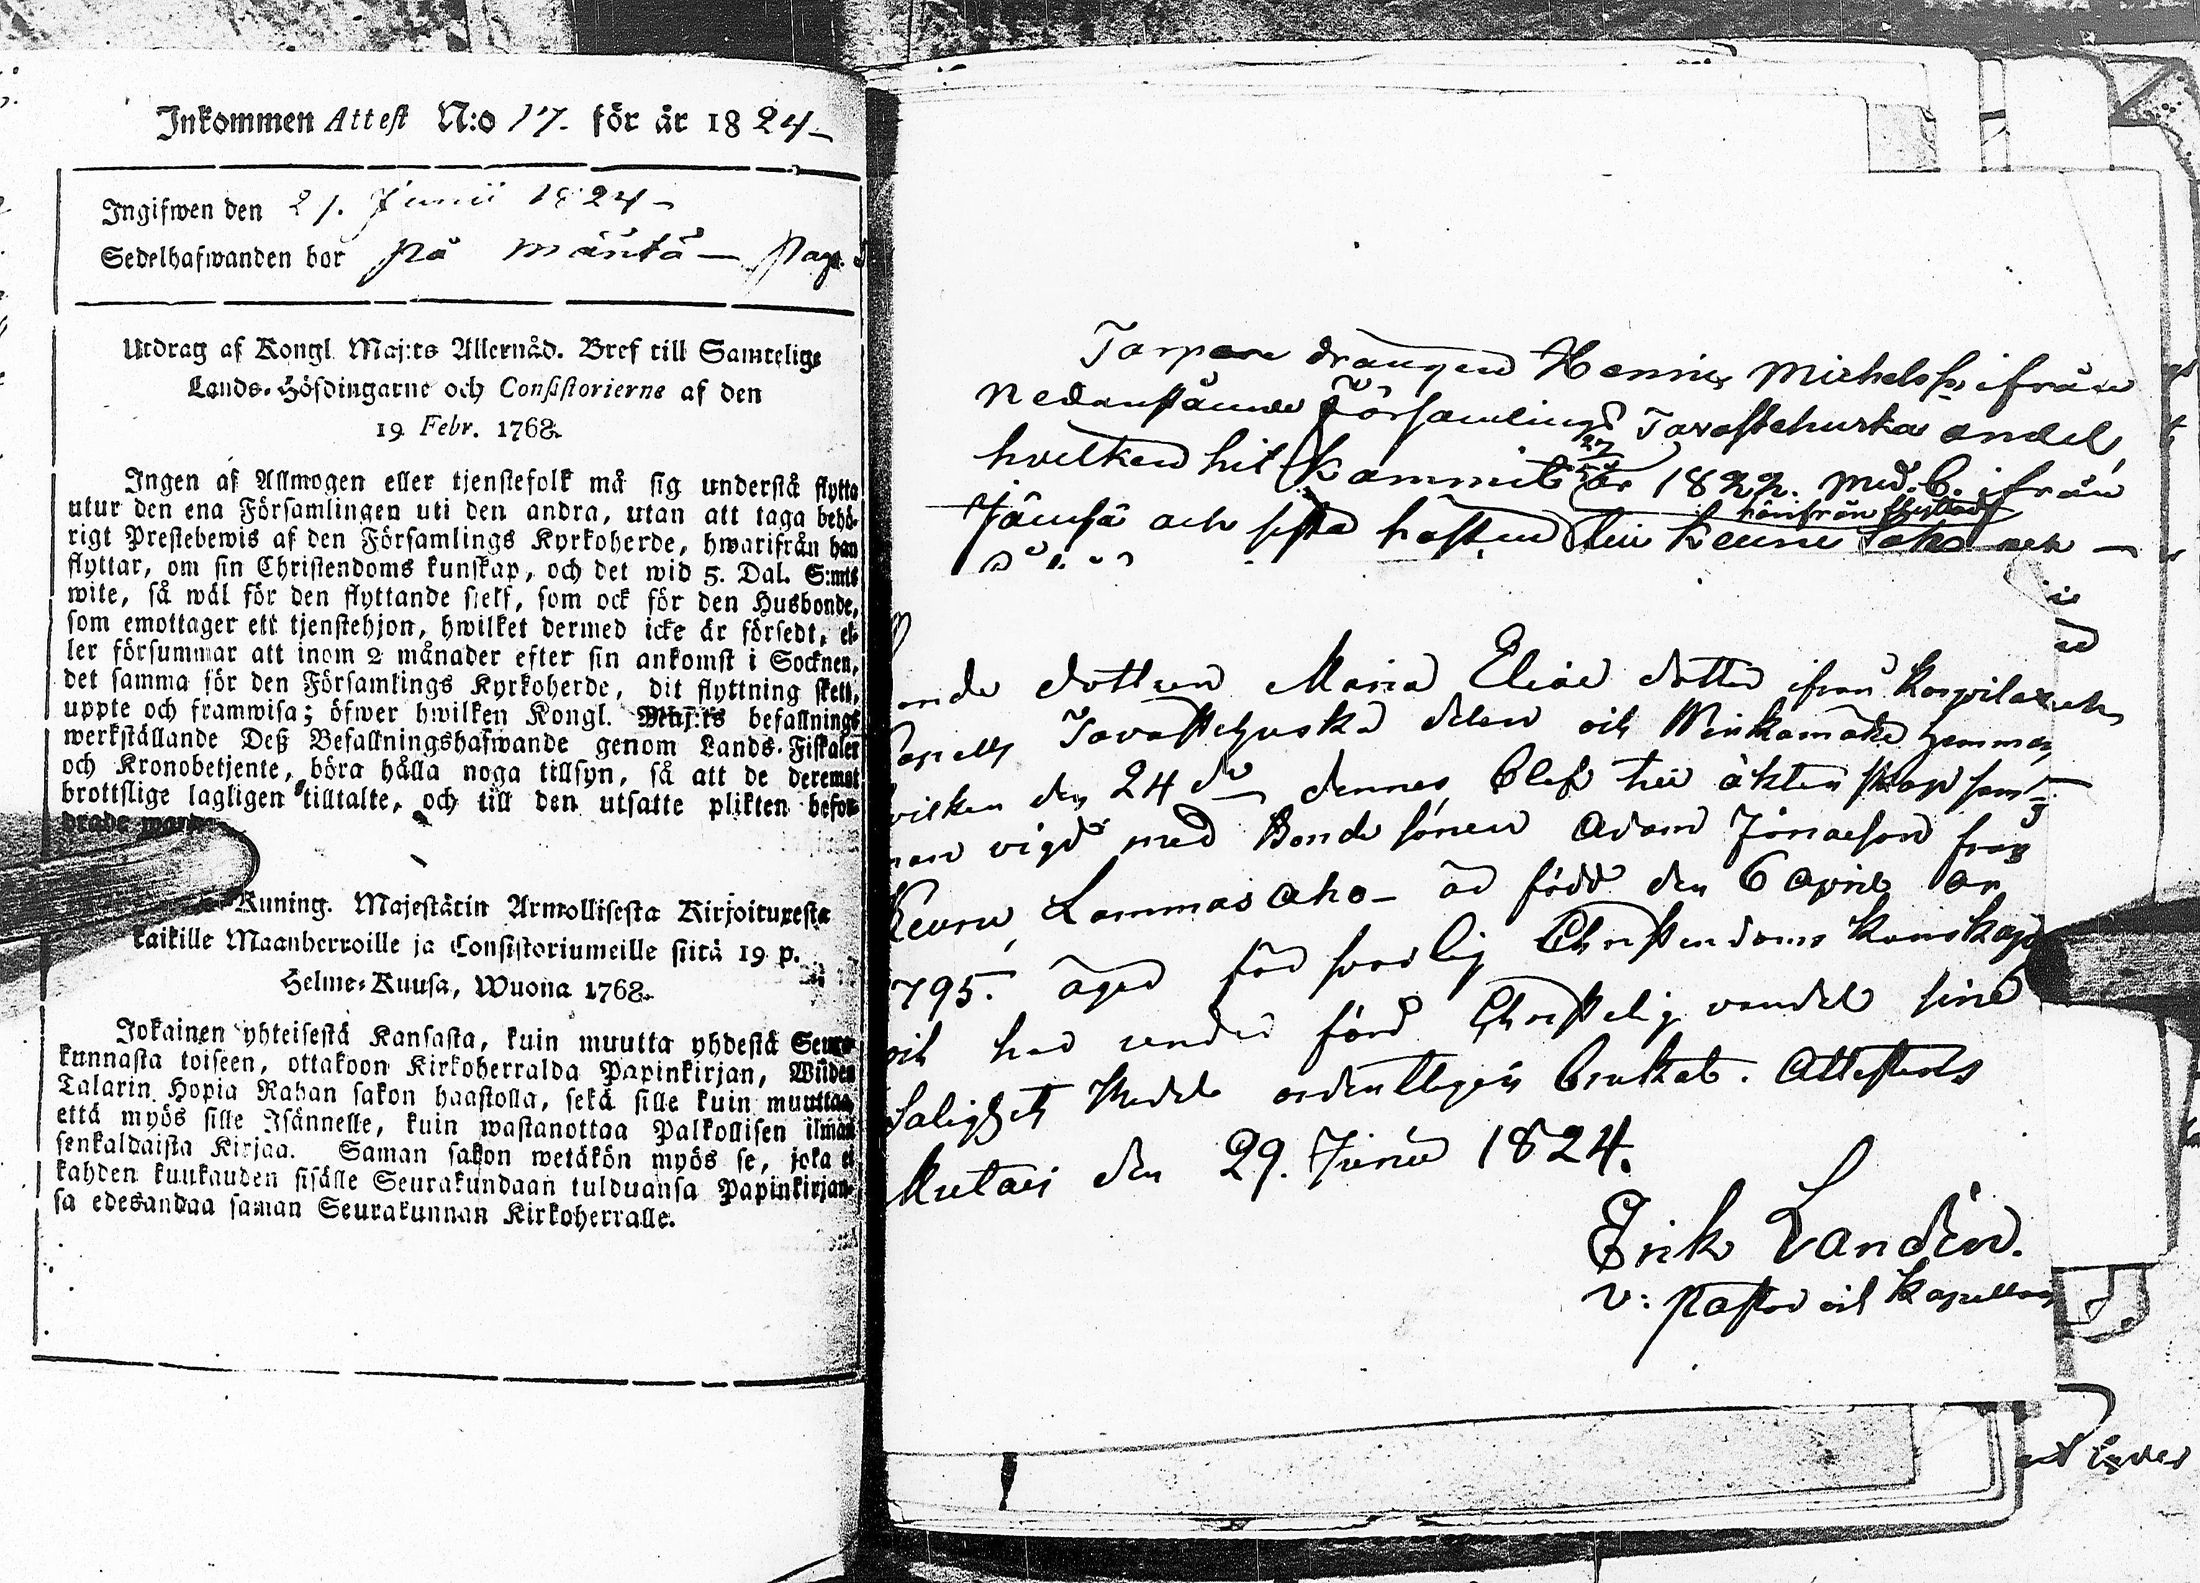 Inkommen Attest N:o 17. för år 1824
Ingifwen den 21. Junii 1824
Sedelhafwanden bor på Mänttä Pag.
Utdrag af Kongl. Maj:ts Allernåd. Bref till Samtelige
Lands-Höfdingarne och Consistorierne af den
19 Febr. 1768.
Ingen af Allmogen eller tjenstefolk må sig understå flytta
utur den ena Församlingen uti den andra, utan att taga behö-
rigt Prestebewis af den Församlings Kyrkoherde, hwarifrån han
flyttar, om sin Christendoms kunskap, och det wid 5. Dal. S:mts
wite, så wäl för den flyttande sielf, som ock för den Husbonde,
som emottager ett tjenstehjon, hwilket dermed icke är försedt, el-
ler försummar att inom 2 månader efter sin ankomst i Socknen,
det samma för den Församlings Kyrkoherde, dit flyttning skett,
uppte och framwisa; öfwer hwilken Kongl. Maj:ts befallnings
werkställande Deß Befallningshafwande genom Lands-Fiskaler
och Kronobetjente, böra hålla noga tillsyn, så att de deremot
brottslige lagligen tilltalte, och till den utsatte plikten befor-
drade
Kuning. Majestätin Armollisesta Kirjoituxesta
kaikille Maanherroille ja Consistoriumeille siitä 19 p.
Helme-Kuusa, Wuona 1768.
Jokainen yhteisestä Kansasta, kuin muutta yhdestä Seura-
kunnasta toiseen, ottakoon Kirkoherralda Papinkirjan, Wiiden
Talarin Hopia Rahan sakon haastolla, sekä sille kuin muuttaa,
että myös sille Isännelle, kuin wastanottaa Palkollisen ilman
senkaldaista Kirjaa. Saman sakon wetäkön myös se, joka ei
kahden kuukauden sisälle Seurakundaan tulduansa Papinkirjan-
sa edesandaa saman Seurakunnan Kirkoherralle.
Torpare drängen Henric Michelss. ifrån
nedanstående Församlings Tavastehuska andel,
hvilken hit kommit 27/ år 1822. med. B. ifrån
Jämsä och sista hösten till Keuru
härifrån flyttade och
onde dottren Maria Elias dotter ifrån Korpilax
Capells Tavastehuska delen och hemman,
hvilken den 24 d:s dennes blef till äktenskap sam-
man vigd med Bonde sonen Adam Jonasson från
Keuru Lammasaho är född den 6 April år
1795. äger försvarlig Christendoms kunskap
och har under förd Christelig vandel sine
Salighets Medel ordentligen brukat. Attesteras
den 29. Junii 1824.
Erik Landén.
v: Pastor och Kapellan